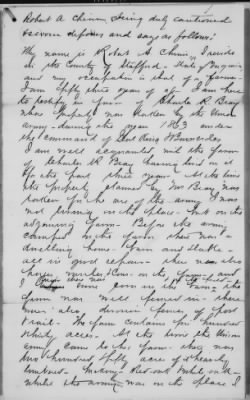 Robert A Chinn, being duly cautioned
& sworn deposes and says as follows:
My name is Robert A. Chinn, I reside
in the County of Stafford - State of Virginia
and my occupation is that of a farmer
I am fifty three years of age I am here
to testify in favor of Charles R. Bray
whose property was taken by the Union
army during the year 1863 under
the command of
I am well acquainted with the farm
of Charles R Bray having lived on it
for the past three years. At the time
the property claimed by Mr Bray was
taken for the use of the army I was
not living on the place - but on the
adjoining farm. Before the army
camped on the farm there was a
dwelling house - barn and stable -
all in good repair - there was also
on the farm - and
I
farm was well fenced in - there
were also division fences of post
& rail - The farm contains five hundred
thirty acres - At the time the Union
army came to the farm - there was
two hundred & fifty acres of heavily
timbered -
while the army was on the place I